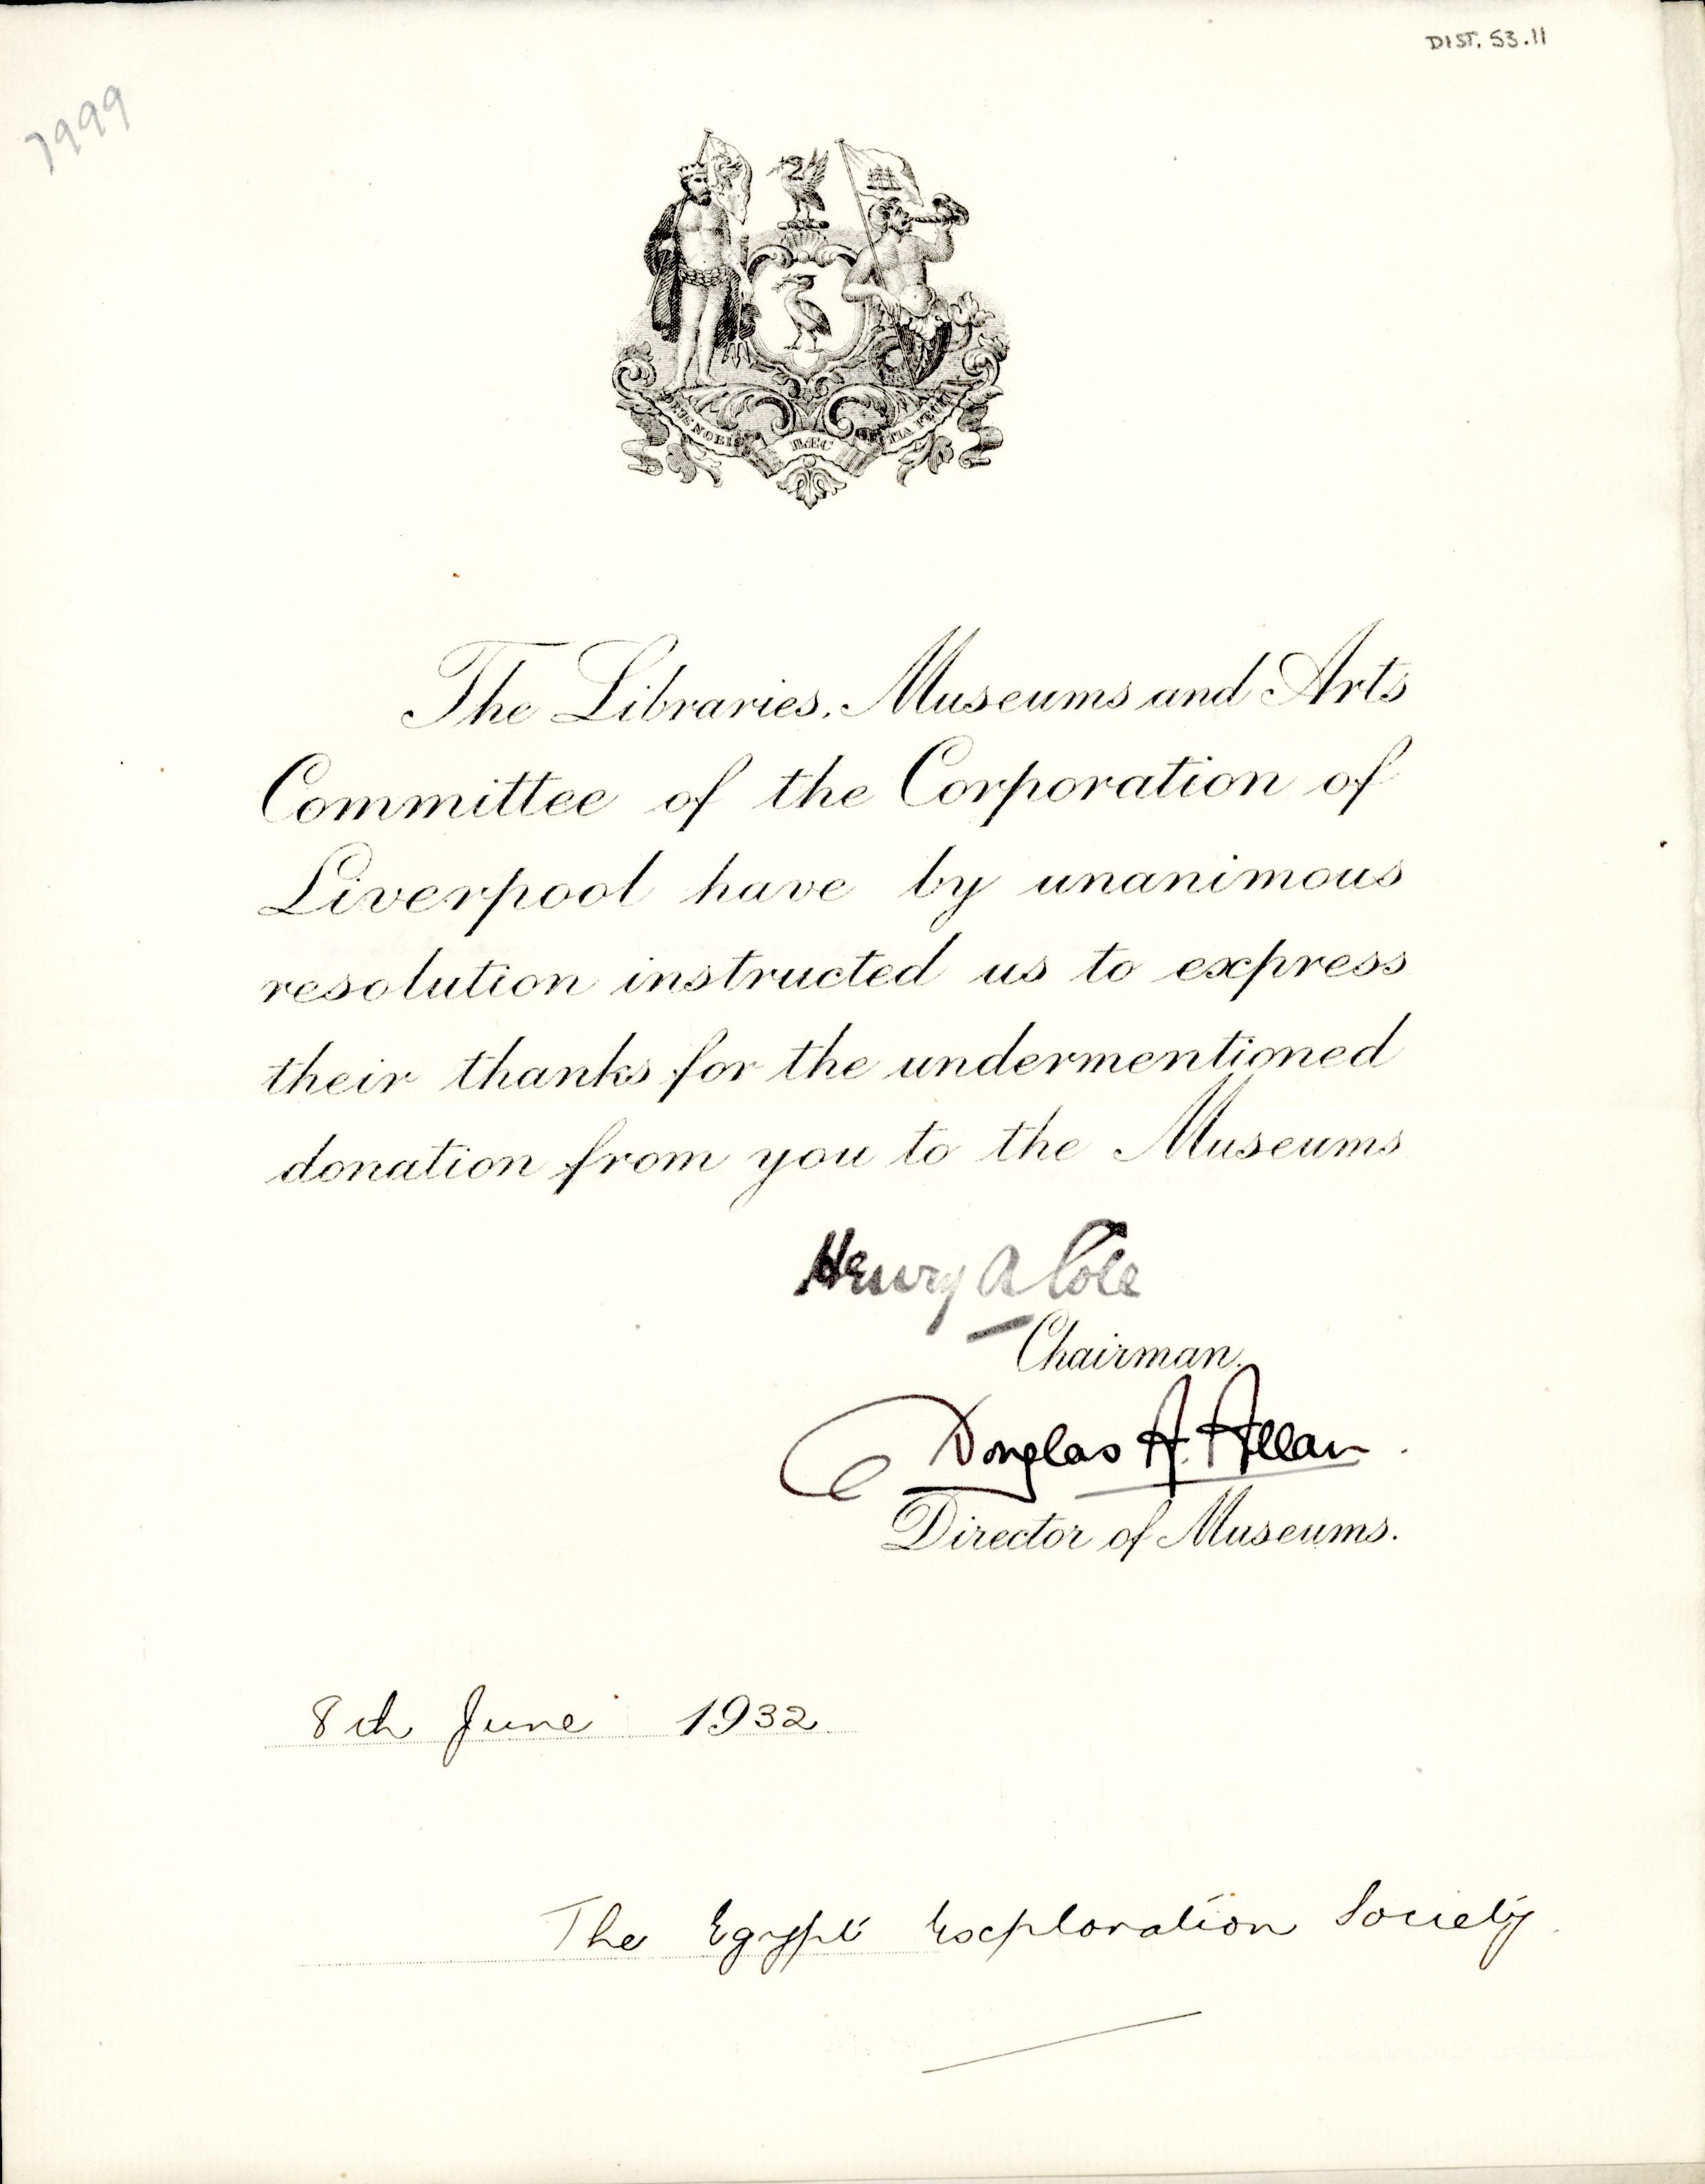 DIST. 53.11
7999
DEUS NOBIS HÆC OTIA FECIT
The Libraries, Museums and Arts
Committee of the Corporation of
Liverpool have by unanimous
resolution instructed us to express
their thanks for the undermentioned
donation from you to the Museums
Henry A Cole
Chairman.
Douglas A. Allan.
Director of Museums.
8th June 1932
The Egypt Exploration Society.